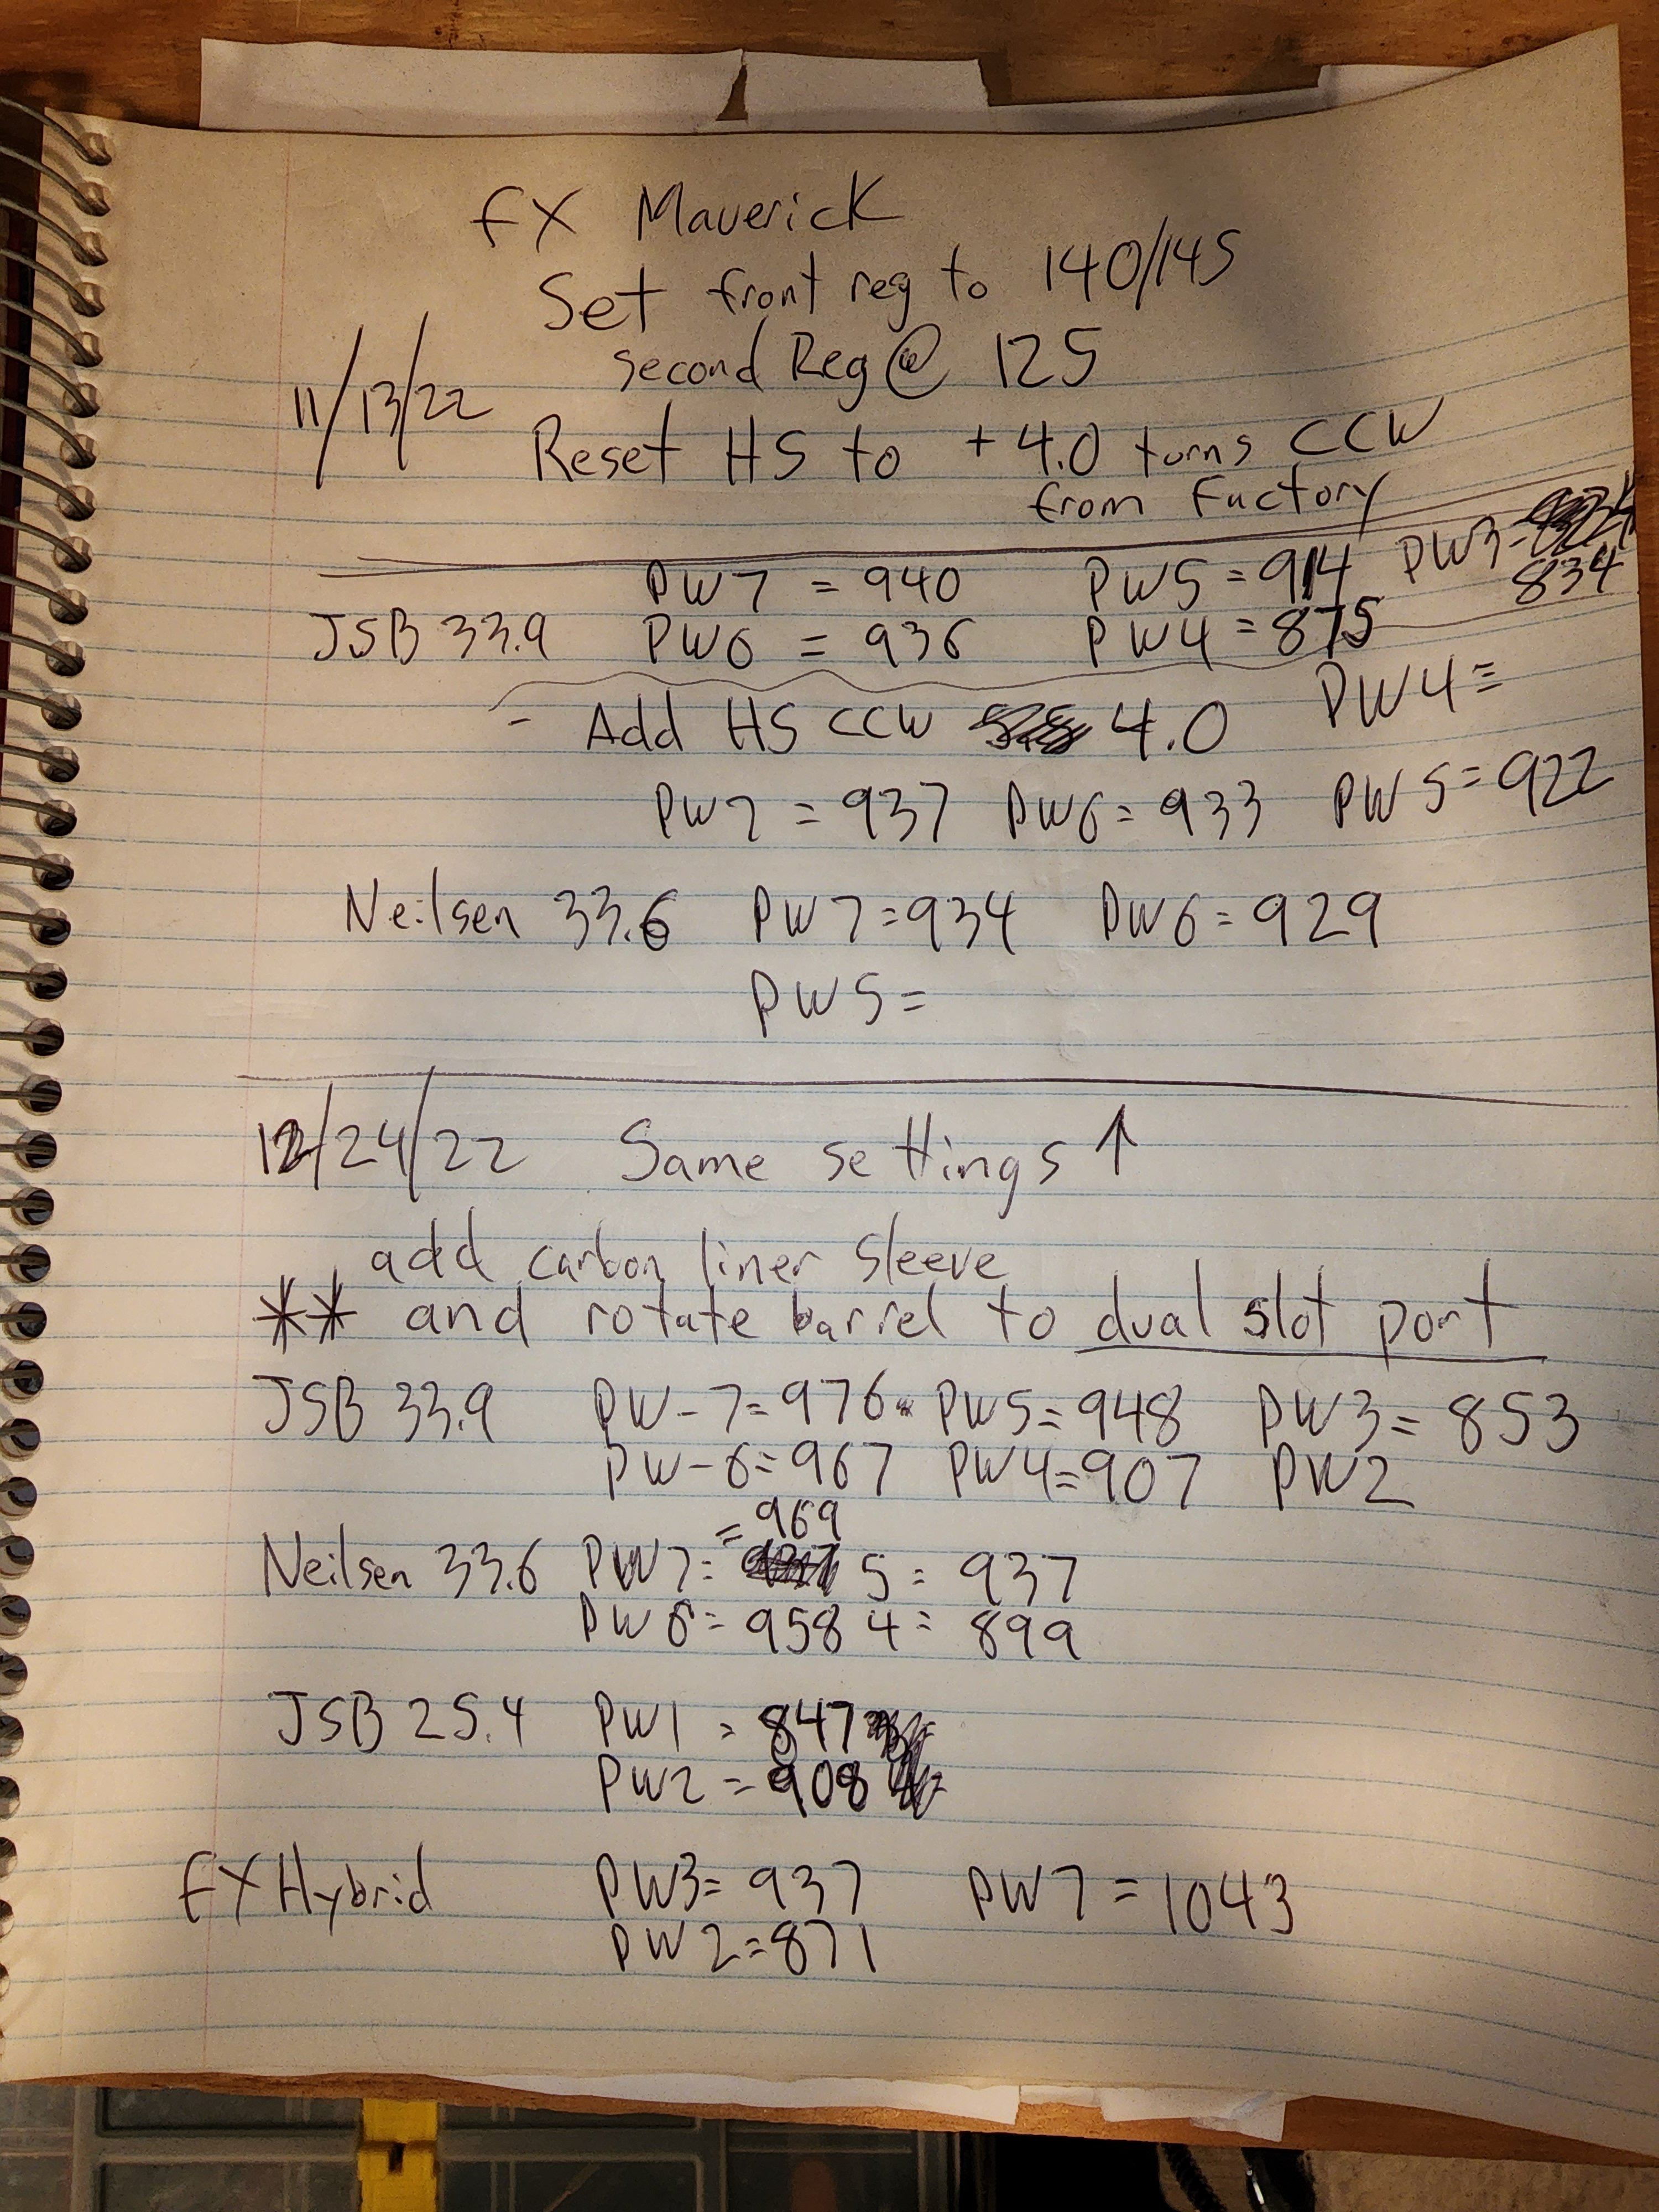 FX Maverick
Set front reg to 140/145
second Reg @ 125
11/13/22
Reset HS to +4.0 turns CCW
from Factory
PW7 = 940 PW5 = 914 PW3 = 834
JSB 33.9 PW6 = 936 PW4 = 875
- Add HS CCW 4.0 PW4 =
PW7 = 937 PW6 = 933 PW5 = 922
Neilsen 33.6 PW7 = 934 PW6 = 929
PW5 =
12/24/22 Same settings ↑
add carbon liner sleeve
** and rotate barrel to dual slot port
JSB 33.9 PW-7 = 976 PW5 = 948 PW3 = 853
PW-6 = 967 PW4 = 907 PW2
= 969
Neilsen 33.6 PW7 = 5 = 937
PW6 = 958 4 = 899
JSB 25.4 PW1 = 847
PW2 = 908
FX Hybrid PW3 = 937 PW7 = 1043
PW2 = 871